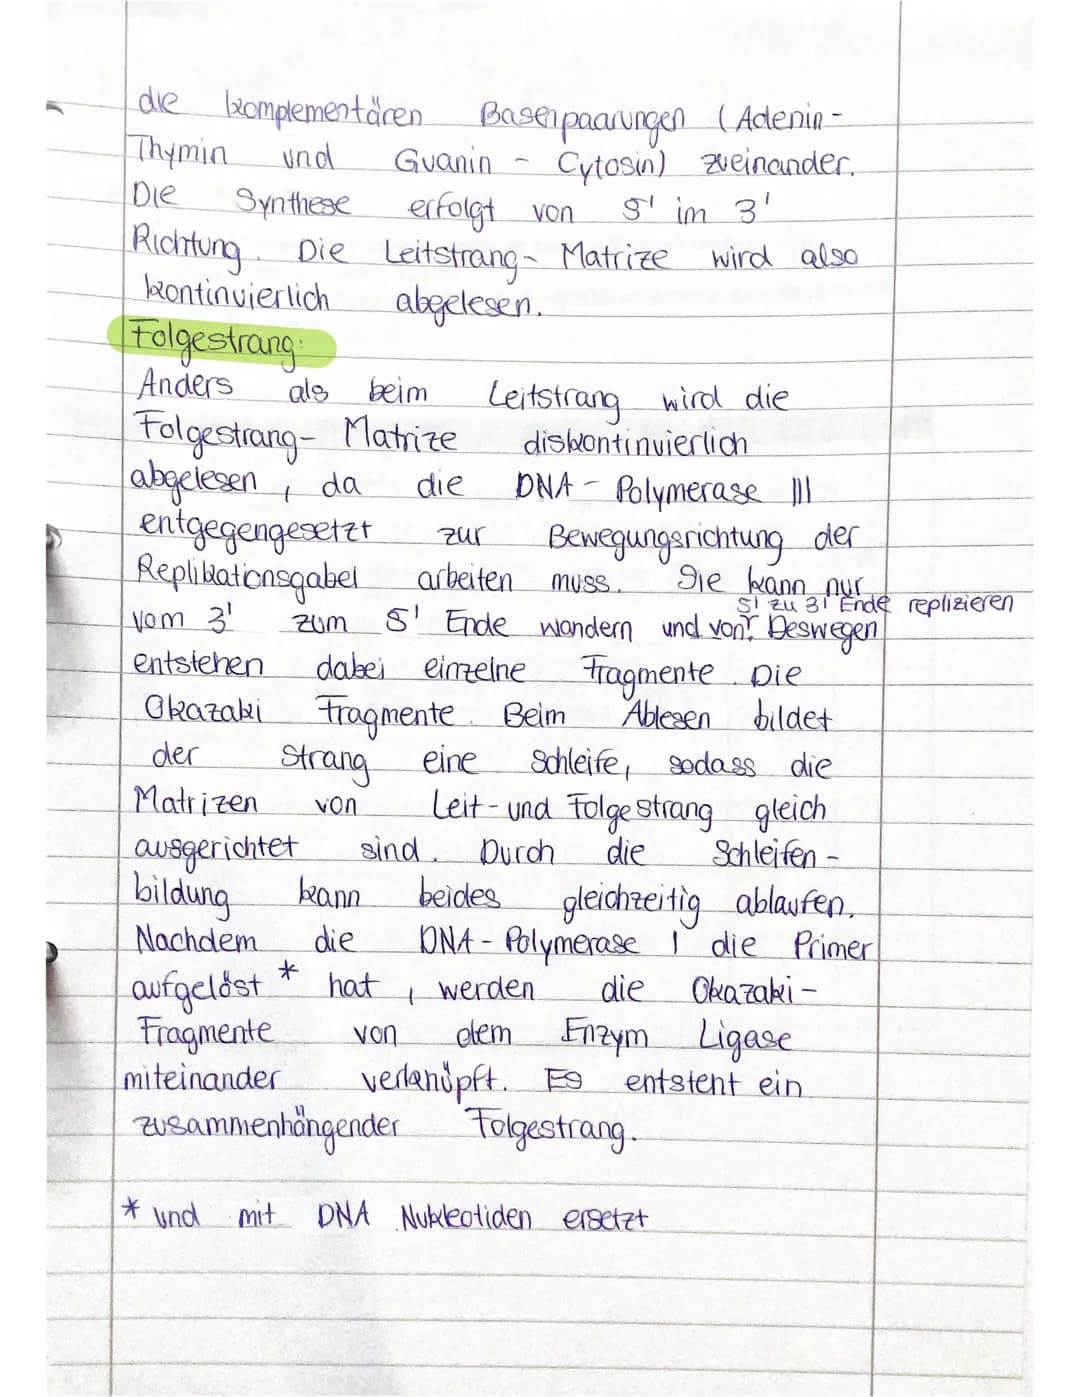 die komplementären Basenpaarungen (Adenin-
Thymin und Guanin - Cytosin) zueinander.
Die Synthese erfolgt von 5' im 3'
Richtung. Die Leitstrang- Matrize wird also
kontinuierlich abgelesen.
Folgestrang:
Anders als beim Leitstrang wird die
Folgestrang- Matrize diskontinuierlich
abgelesen, da die DNA - Polymerase III
entgegengesetzt zur Bewegungsrichtung der
Replikationsgabel arbeiten muss. Sie kann nur
5' zu 3' Ende replizieren
vom 3' zum 5' Ende wandern und von Deswegen
entstehen dabei einzelne Fragmente. Die
Okazaki Fragmente. Beim Ablesen bildet
der Strang eine Schleife, sodass die
Matrizen von Leit- und Folgestrang gleich
ausgerichtet sind. Durch die Schleifen-
bildung kann beides gleichzeitig ablaufen.
Nachdem die DNA - Polymerase I die Primer
aufgelöst * hat, werden die Okazaki-
Fragmente von dem Enzym Ligase
miteinander verknüpft. Es entsteht ein
zusammenhängender Folgestrang.
* und mit DNA Nukleotiden ersetzt